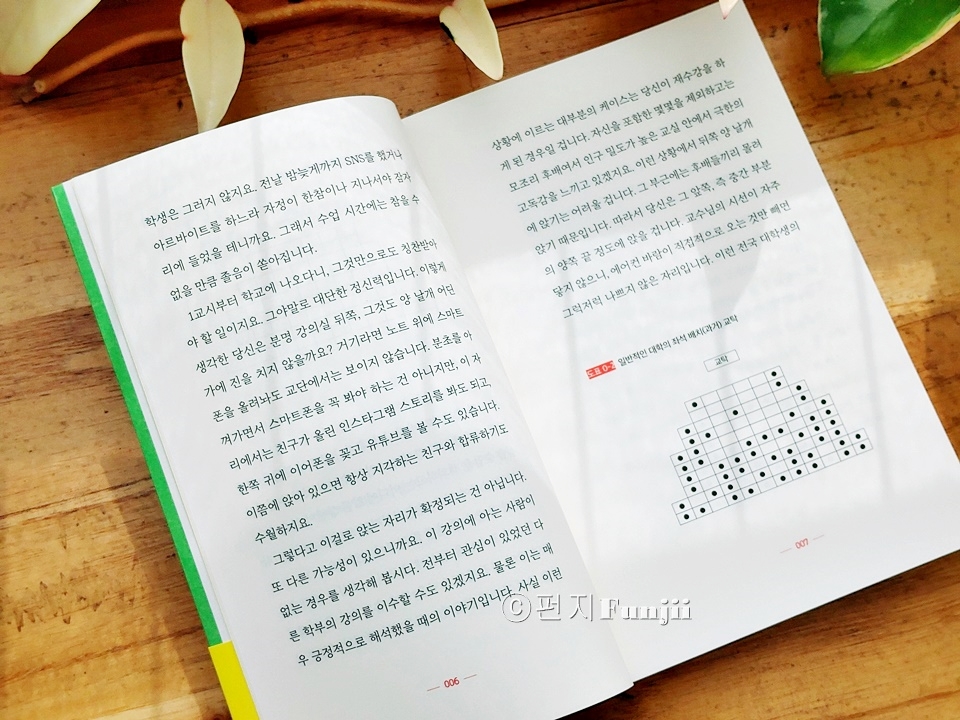 학생은 그러지 않지요. 전날 밤늦게까지 SNS를 했거나
아르바이트를 하느라 자정이 한참이나 지나서야 잠자
리에 들었을 테니까요. 그래서 수업 시간에는 참을 수
없을 만큼 졸음이 쏟아집니다.
1교시부터 학교에 나오다니, 그것만으로도 칭찬받아
야 할 일이지요. 그야말로 대단한 정신력입니다. 이렇게
생각한 당신은 분명 강의실 뒤쪽, 그것도 양 날개 어딘
가에 진을 치지 않을까요? 거기라면 노트 위에 스마트
폰을 올려놔도 교단에서는 보이지 않습니다. 분초를 아
껴가면서 스마트폰을 꼭 봐야 하는 건 아니지만, 이 자
리에서는 친구가 올린 인스타그램 스토리를 봐도 되고,
한쪽 귀에 이어폰을 꽂고 유튜브를 볼 수도 있습니다.
이쯤에 앉아 있으면 항상 지각하는 친구와 합류하기도
수월하지요.
그렇다고 이걸로 앉는 자리가 확정되는 건 아닙니다.
또 다른 가능성이 있으니까요. 이 강의에 아는 사람이
없는 경우를 생각해 봅시다. 전부터 관심이 있었던 다
른 학부의 강의를 이수할 수도 있겠지요. 물론 이는 매
우 긍정적으로 해석했을 때의 이야기입니다. 사실 이런
006
상황에 이르는 대부분의 케이스는 당신이 재수강을 하
게 된 경우일 겁니다. 자신을 포함한 몇몇을 제외하고는
모조리 후배여서 인구 밀도가 높은 교실 안에서 극한의
고독감을 느끼고 있겠지요. 이런 상황에서 뒤쪽 양 날개
에 앉기는 어려울 겁니다. 그 부근에는 후배들끼리 몰려
앉기 때문입니다. 따라서 당신은 그 앞쪽, 즉 중간 부분
의 양쪽 끝 정도에 앉을 겁니다. 교수님의 시선이 자주
닿지 않으니, 에어컨 바람이 직접적으로 오는 것만 빼면
그럭저럭 나쁘지 않은 자리입니다. 이런 전국 대학생의
도표 0-2 일반적인 대학의 좌석 배치(과거) 교탁
교탁
007
©펀지Funjii